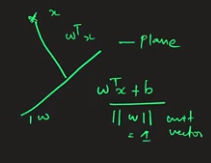 x
wᵀx
— plane
w
wᵀx + b
||w|| unit
= 1 vector